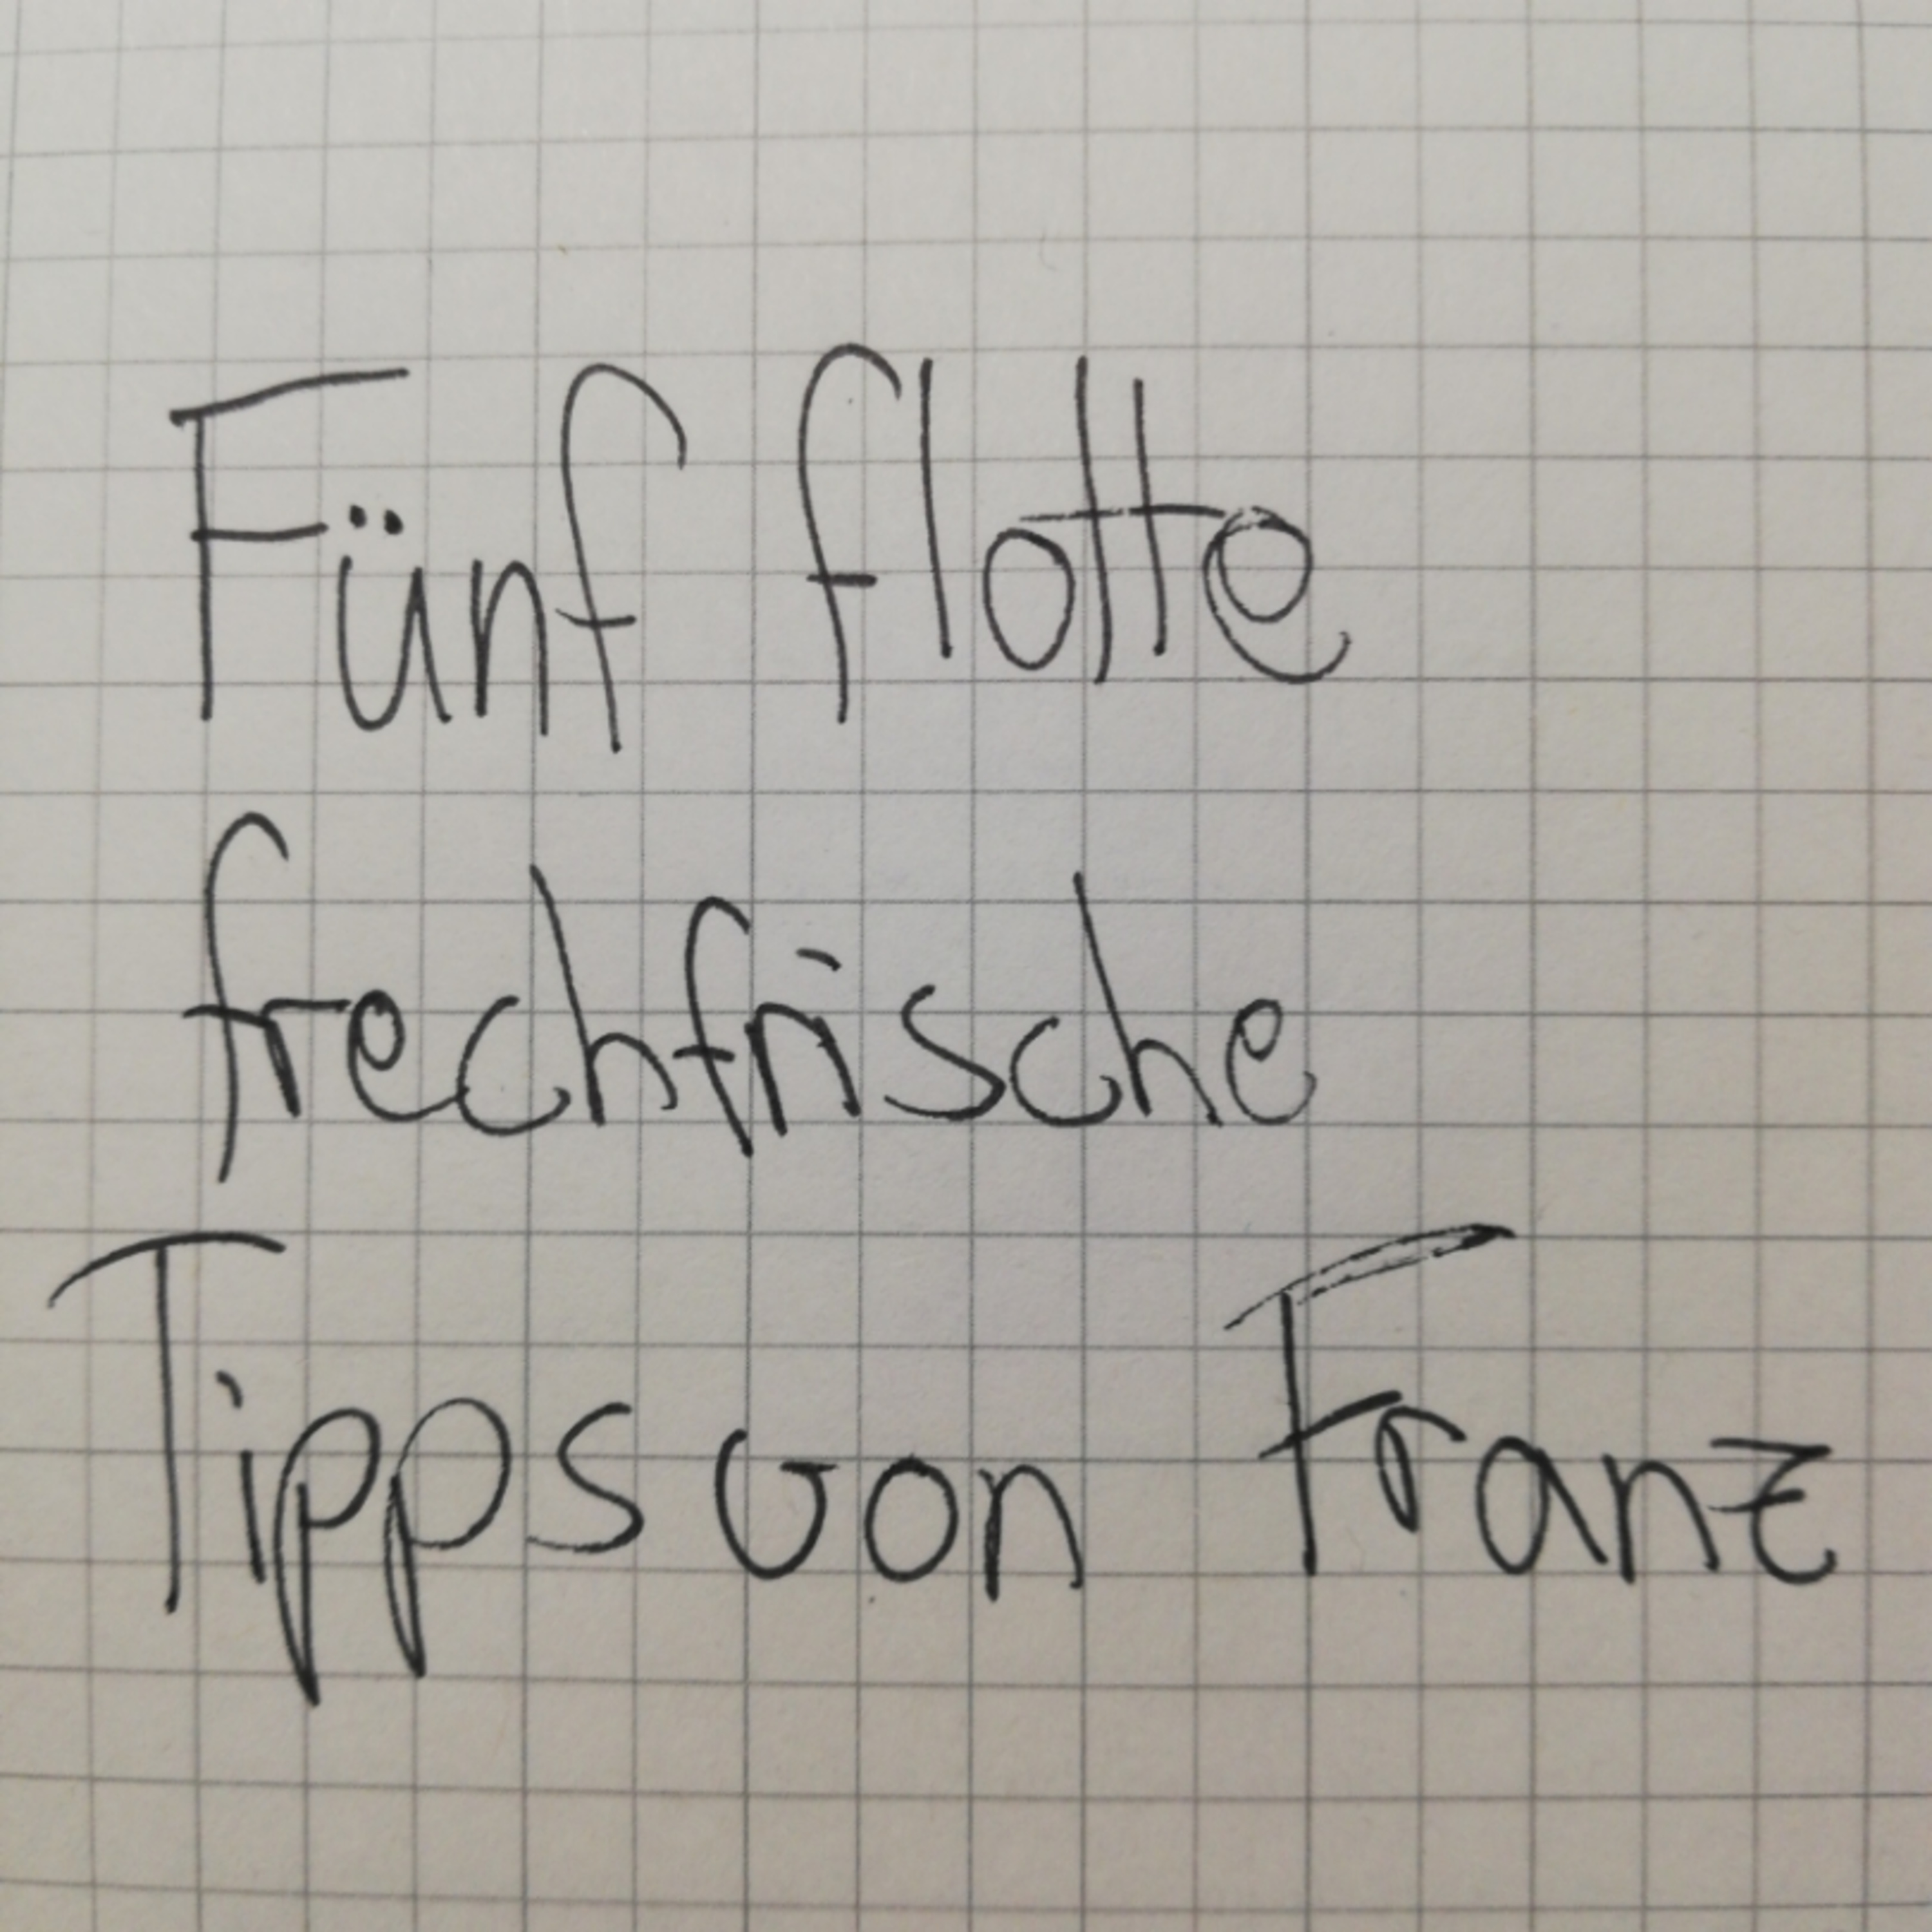 Fünf flotte
frechfrische
Tipps von Franz